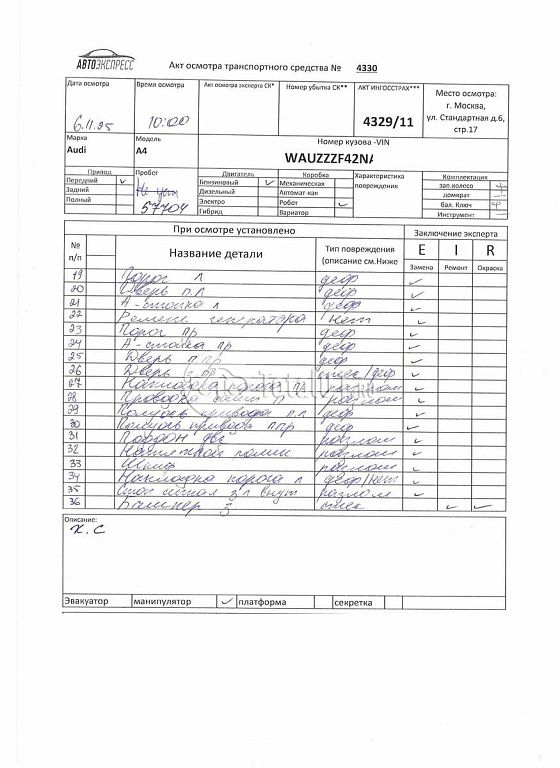 АВТОЭКСПРЕСС
Акт осмотра транспортного средства № 4330
Дата осмотра Время осмотра Акт осмотра эксперта СК* Номер убытка СК** АКТ ИНГОССТРАХ*** Место осмотра:
г. Москва,
ул. Стандартная д.6,
стр.17
6.11.25 10:00 4329/11
Марка Модель Номер кузова -VIN
Audi A4 WAUZZZF42NA
Привод Пробег Двигатель Коробка Характеристика повреждения Комплектация
Передний Бензиновый Механическая зап.колесо
Задний Дизельный Автомат-кая домкрат
Полный 57704 Электро Робот бал. Ключ
Гибрид Вариатор Инструмент
При осмотре установлено Заключение эксперта
№ п/п Название детали Тип повреждения (описание см.Ниже E I R
Замена Ремонт Окраска
19 Порог л деф
20 Дверь п.л деф
21 А-стойка л деф
22 Ремень генератора нет
23 Порог пр деф
24 А-стойка пр деф
25 Дверь п пр деф
26 Дверь з пр /деф
27 Накладка порога пр разлом
28 Проводка разлом
29 Полуось привода п.л деф
30 Полуось привода п пр деф
31 Поддон двс разлом
32 Натяжной ролик разлом
33 Шкив разлом
34 Накладка порога л деф/нет
35 Стоп сигнал з л внут разлом
36 Бампер з
Описание:
х.с
Эвакуатор манипулятор платформа секретка